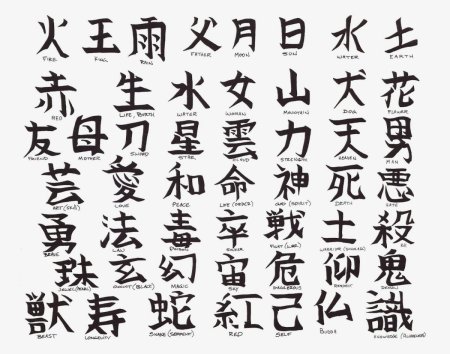 火 王 雨 父 月 日 水 土
FIRE KING RAIN FATHER MOON SUN WATER EARTH
赤 生 水 女 山 犬 花
RED LIFE, BIRTH WATER WOMAN MOUNTAIN DOG FLOWER
友 母 刀 星 雲 力 天 男
FRIEND MOTHER SWORD STAR CLOUD STRENGTH HEAVEN MAN
芸 愛 和 命 神 死 悪
ART (SKILL) LOVE PEACE LIFE (ORDER) GOD (SPIRIT) DEATH HATE
勇 法 毒 卒 戦 士 殺
BRAVE LAW POISON FIGHT (WAR) WARRIOR (SCHOLAR)
珠 玄 幻 宙 危 仰 鬼
JEWEL (PEARL) OCCULT (BLACK) MAGIC SKY DANGEROUS DEMON
獣 寿 蛇 紅 己 仏 識
BEAST LONGEVITY SNAKE (SERPENT) RED SELF BUDDHA KNOWLEDGE